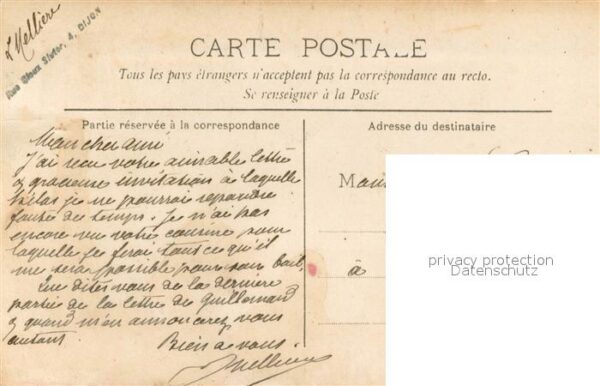 L Mellière
Rue Vieux 4, DIJON
CARTE POSTALE
Tous les pays étrangers n'acceptent pas la correspondance au recto.
Se renseigner à la Poste
Partie réservée à la correspondance
Mon cher ami
J'ai reçu votre aimable lettre
& gracieuse invitation à laquelle
hélas je ne pourrai repondre
faute de temps. Je n'ai pas
encore vu votre cousine pour
laquelle je ferai tout ce qu'il
me sera possible pour son bail.
Que dites vous de la derniere
partie de la lettre de Guillemard
& quand m'en annoncerez vous
autant
Bien à vous.
Mellière
Adresse du destinataire
à
privacy protection
Datenschutz